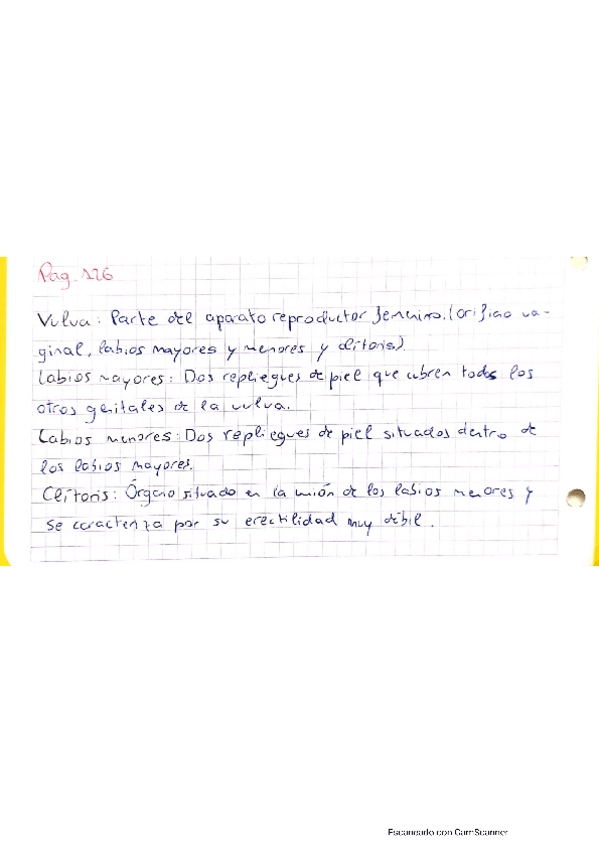 Pag. 126
Vulva: Parte del aparato reproductor femenino. (orificio va-
ginal, labios mayores y menores y clítoris)
Labios mayores: Dos repliegues de piel que cubren todos los
otros genitales de la vulva.
Labios menores: Dos repliegues de piel situados dentro de
los labios mayores.
Clítoris: Órgano situado en la unión de los labios menores y
se caracteriza por su erectilidad muy débil.
Escaneado con CamScanner